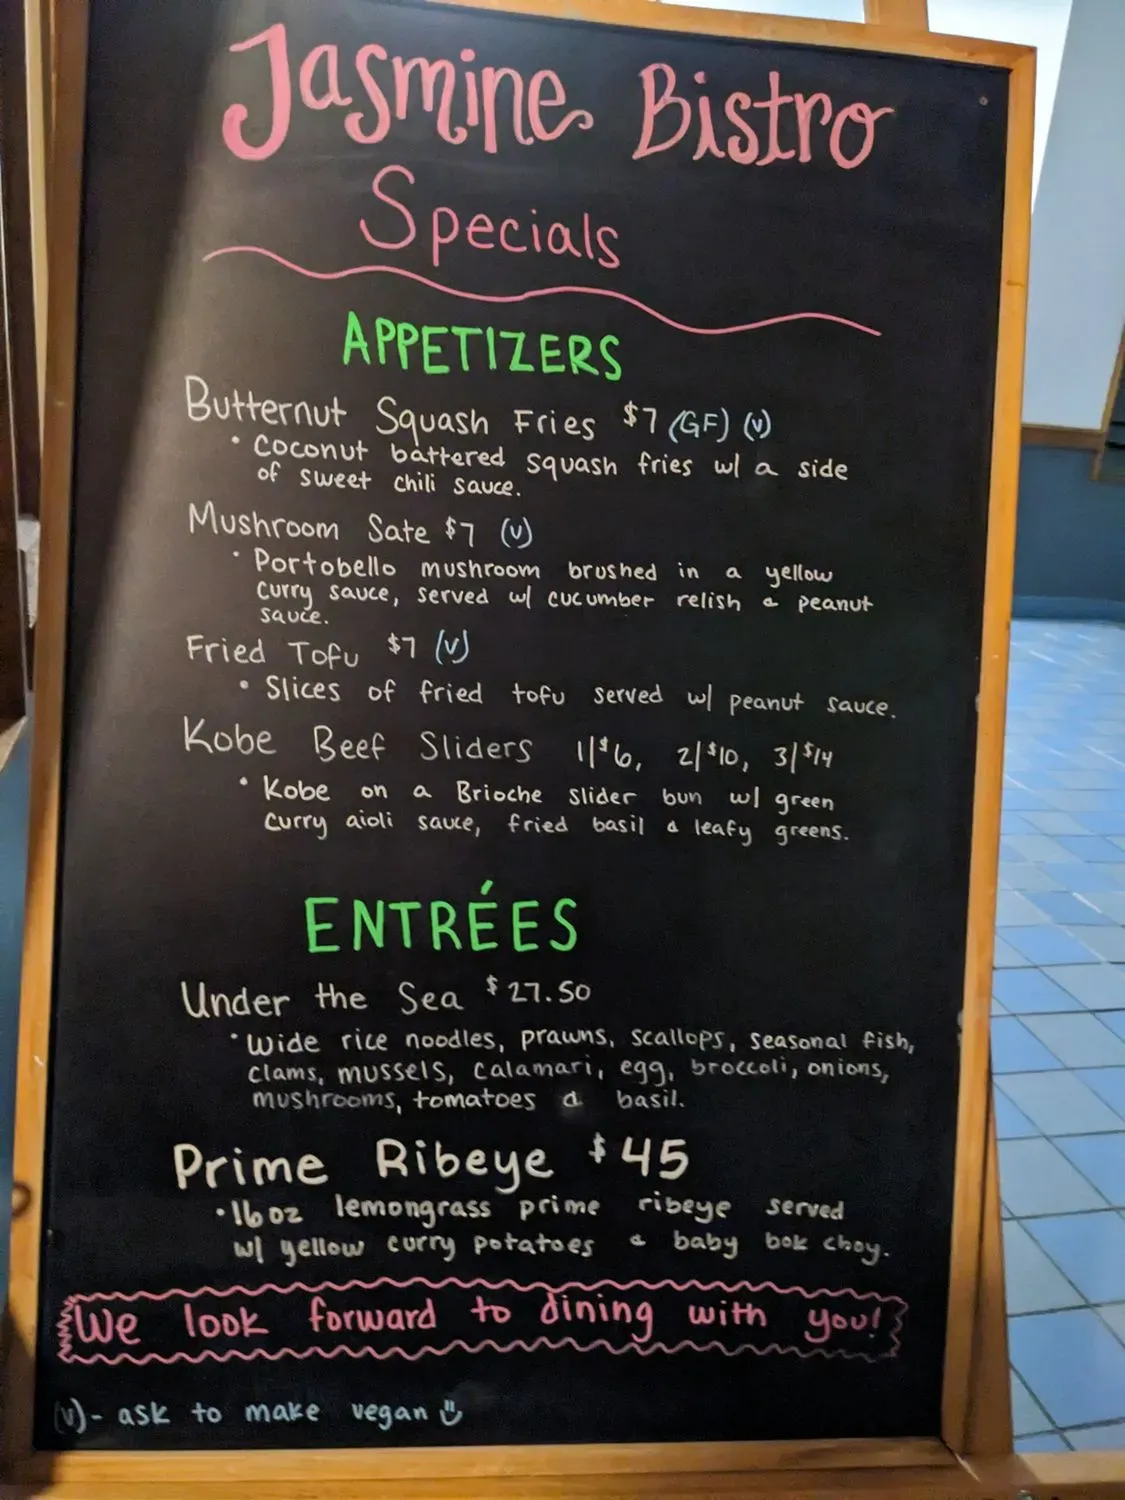 Jasmine Bistro
Specials
APPETIZERS
Butternut Squash Fries $7 (GF) (V)
• Coconut battered squash fries w/ a side
of sweet chili sauce.
Mushroom Sate $7 (V)
• Portobello mushroom brushed in a yellow
curry sauce, served w/ cucumber relish & peanut
sauce.
Fried Tofu $7 (V)
• Slices of fried tofu served w/ peanut sauce.
Kobe Beef Sliders 1/$6, 2/$10, 3/$14
• Kobe on a Brioche slider bun w/ green
curry aioli sauce, fried basil & leafy greens.
ENTRÉES
Under the Sea $27.50
• Wide rice noodles, prawns, scallops, seasonal fish,
clams, mussels, calamari, egg, broccoli, onions,
mushrooms, tomatoes & basil.
Prime Ribeye $45
• 16 oz lemongrass prime ribeye served
w/ yellow curry potatoes & baby bok choy.
We look forward to dining with you!
(V) - ask to make vegan